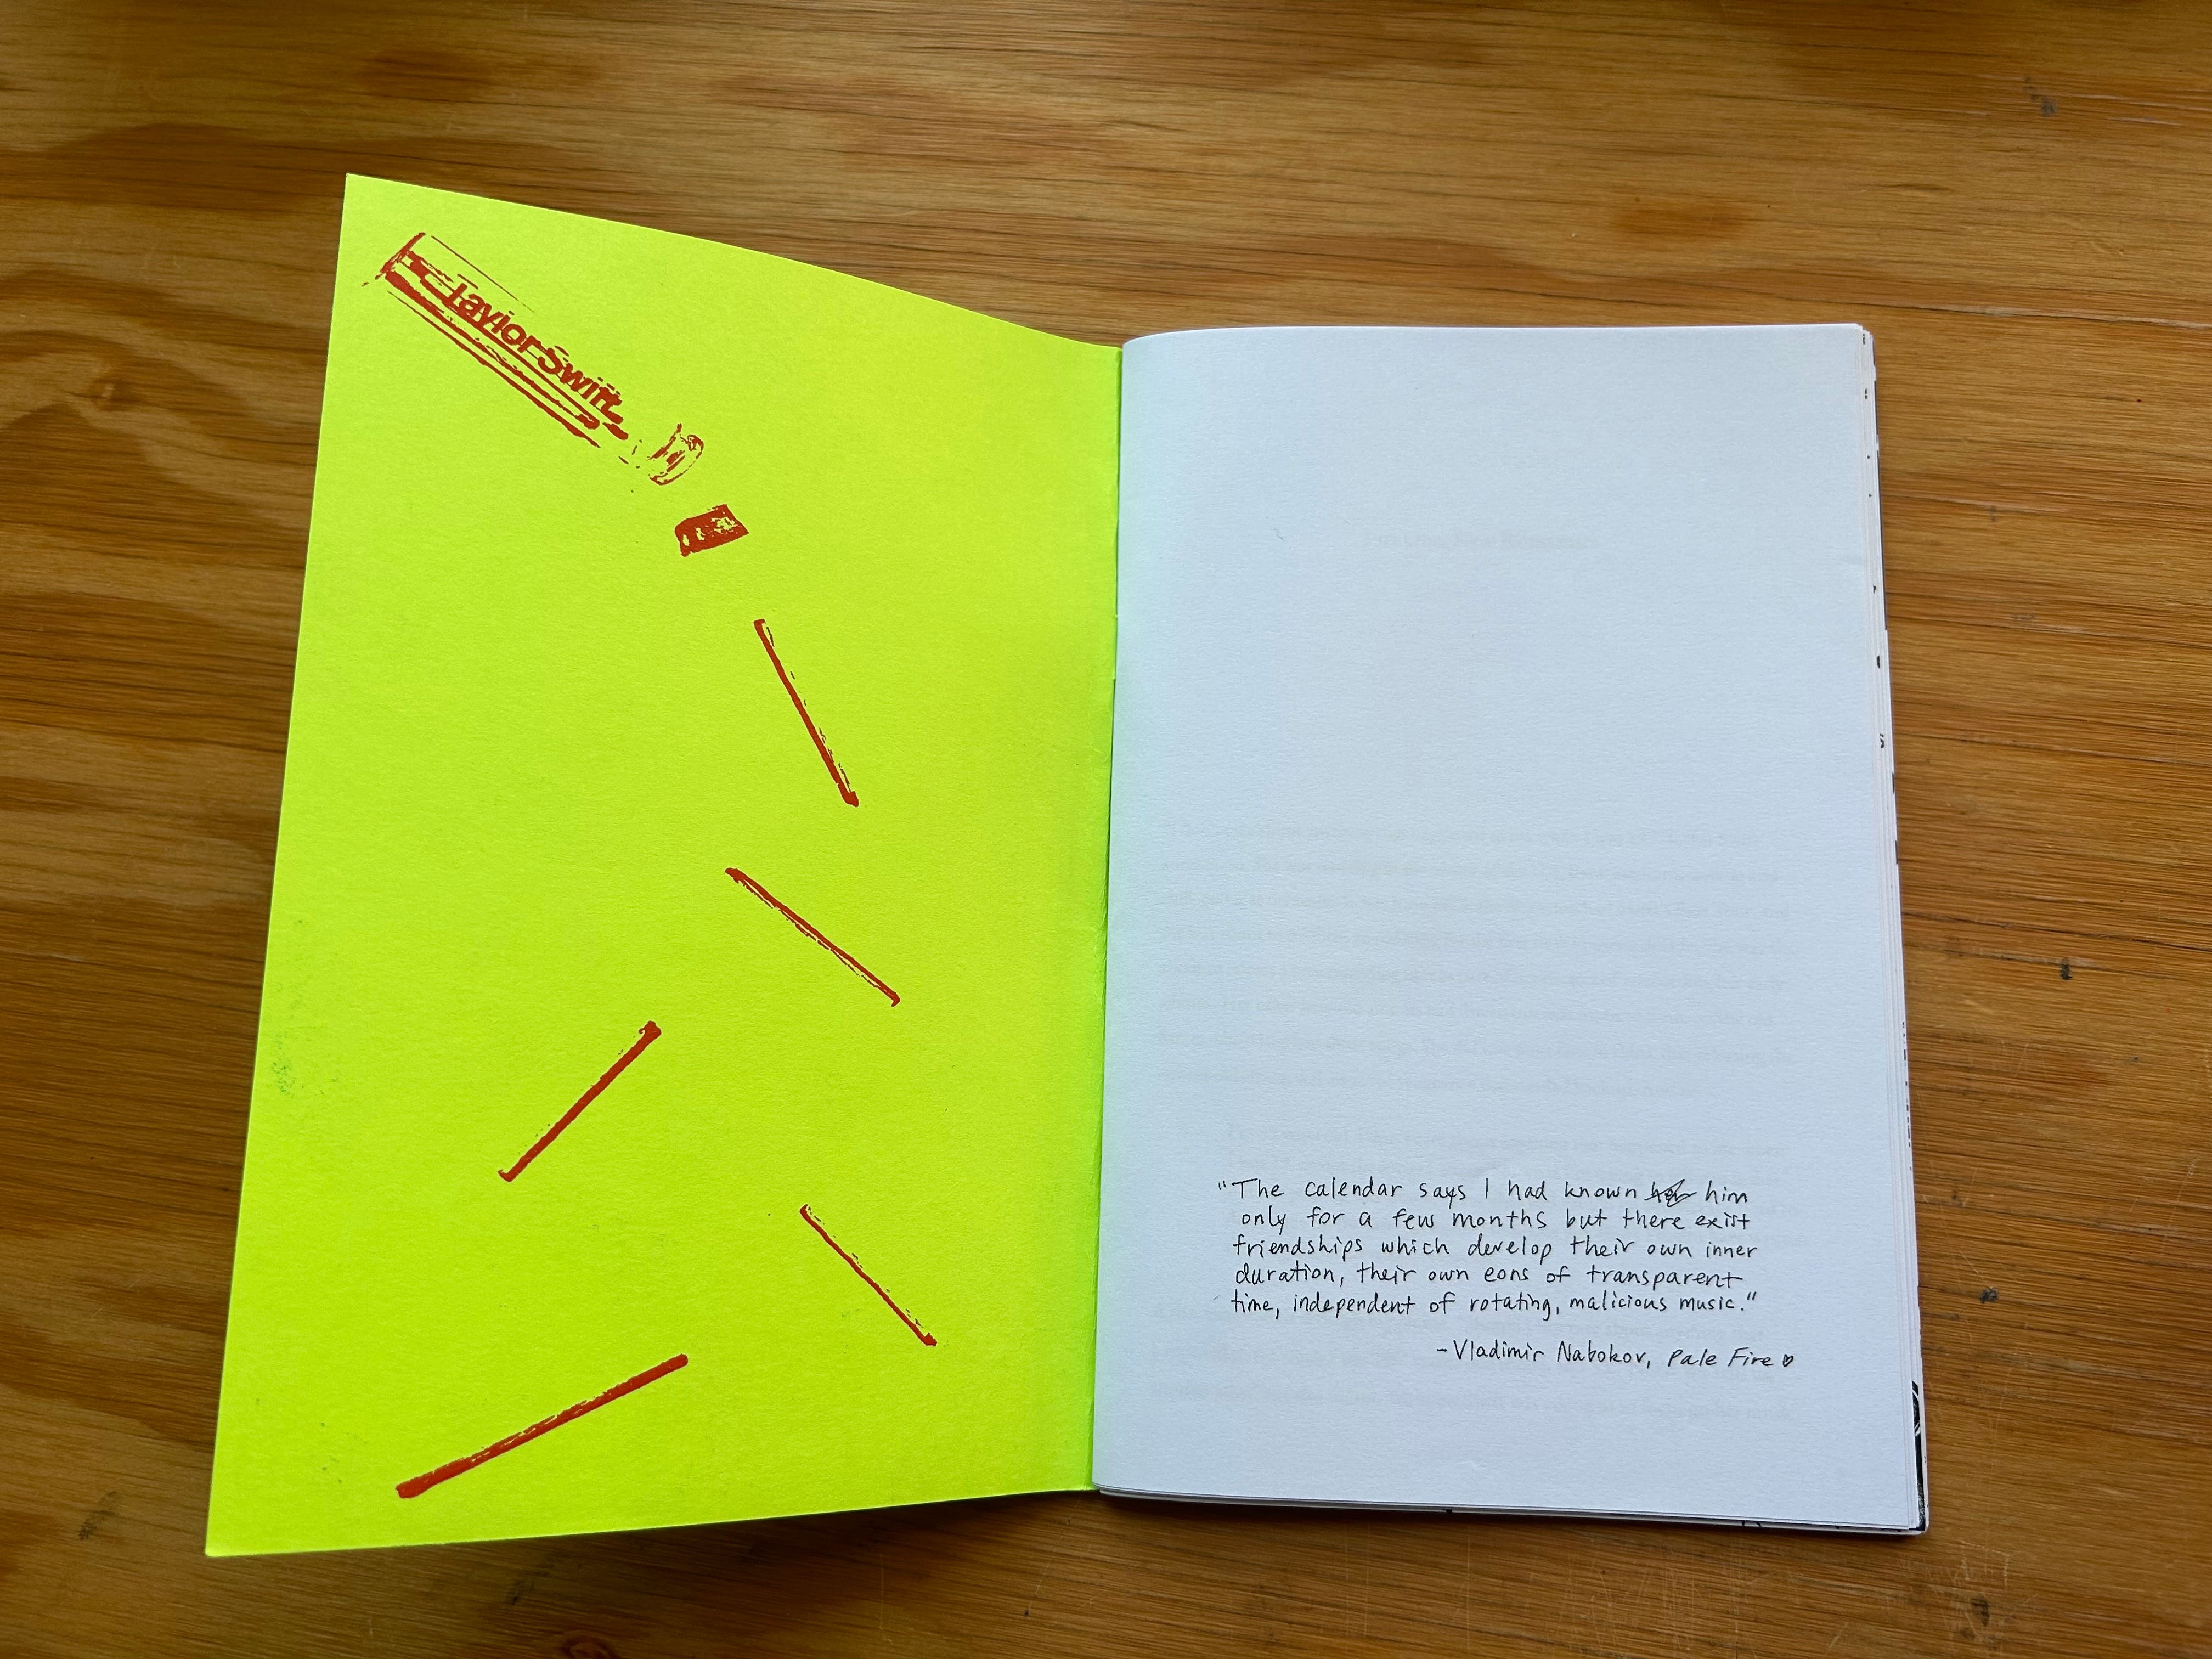 TaylorSwift
"The calendar says I had known her him
only for a few months but there exist
friendships which develop their own inner
duration, their own eons of transparent
time, independent of rotating, malicious music."
-Vladimir Nabokov, Pale Fire